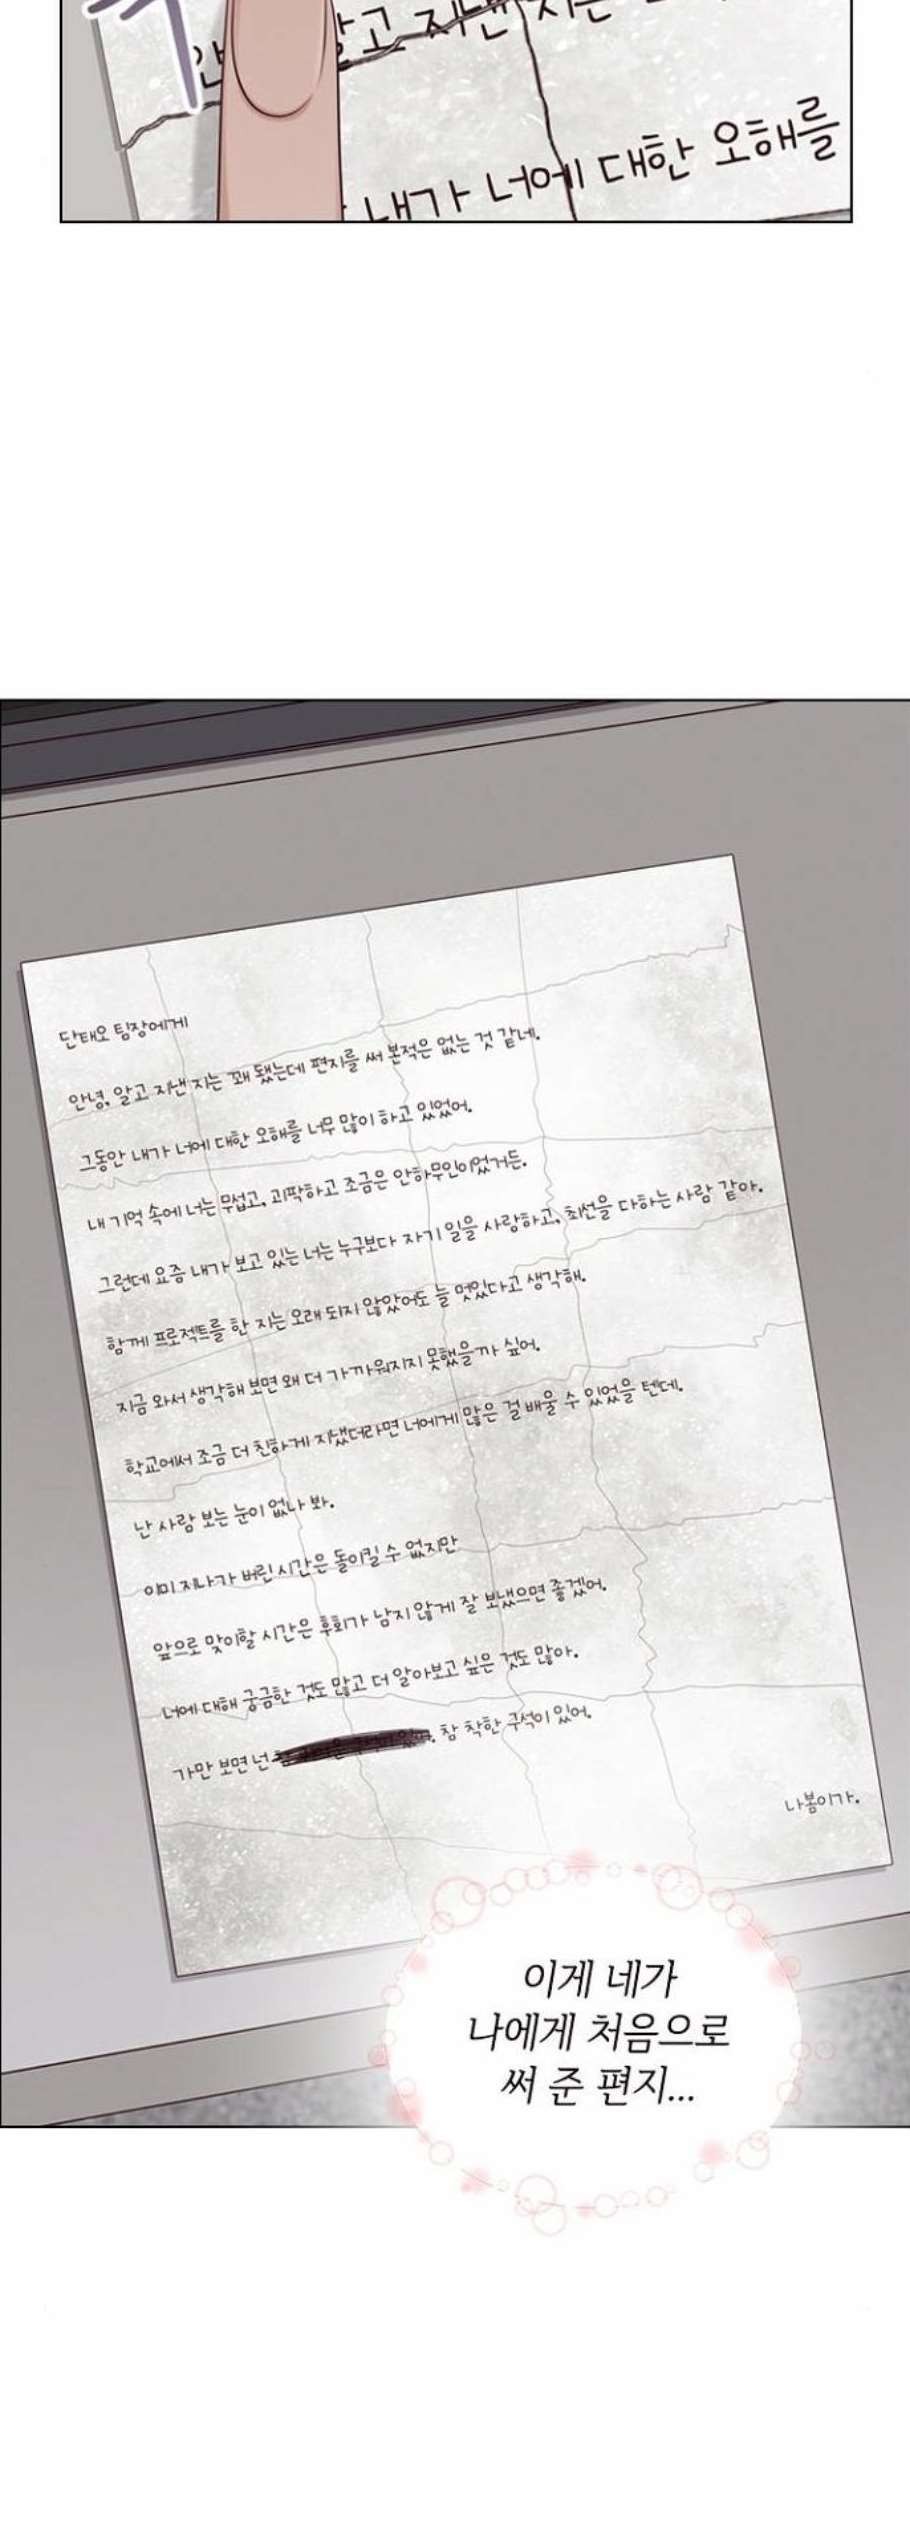 알고 지낸 지는
내가 너에 대한 오해를
단태오 팀장에게
안녕, 알고 지낸 지는 꽤 됐는데 편지를 써 본적은 없는 것 같네.
그동안 내가 너에 대한 오해를 너무 많이 하고 있었어.
내 기억 속에 너는 무섭고, 괴팍하고 조금은 안하무인이었거든.
그런데 요즘 내가 보고 있는 너는 누구보다 자기 일을 사랑하고, 최선을 다하는 사람 같아.
함께 프로젝트를 한 지는 오래 되지 않았어도 늘 멋있다고 생각해.
지금 와서 생각해 보면 왜 더 가까워지지 못했을까 싶어.
학교에서 조금 더 친하게 지냈더라면 너에게 많은 걸 배울 수 있었을 텐데.
난 사람 보는 눈이 없나 봐.
이미 지나가 버린 시간은 돌이킬 수 없지만
앞으로 맞이할 시간은 후회가 남지 않게 잘 보냈으면 좋겠어.
너에 대해 궁금한 것도 많고 더 알아보고 싶은 것도 많아.
가만 보면 넌 참 착한 구석이 있어.
나봄이가.
이게 네가
나에게 처음으로
써 준 편지...